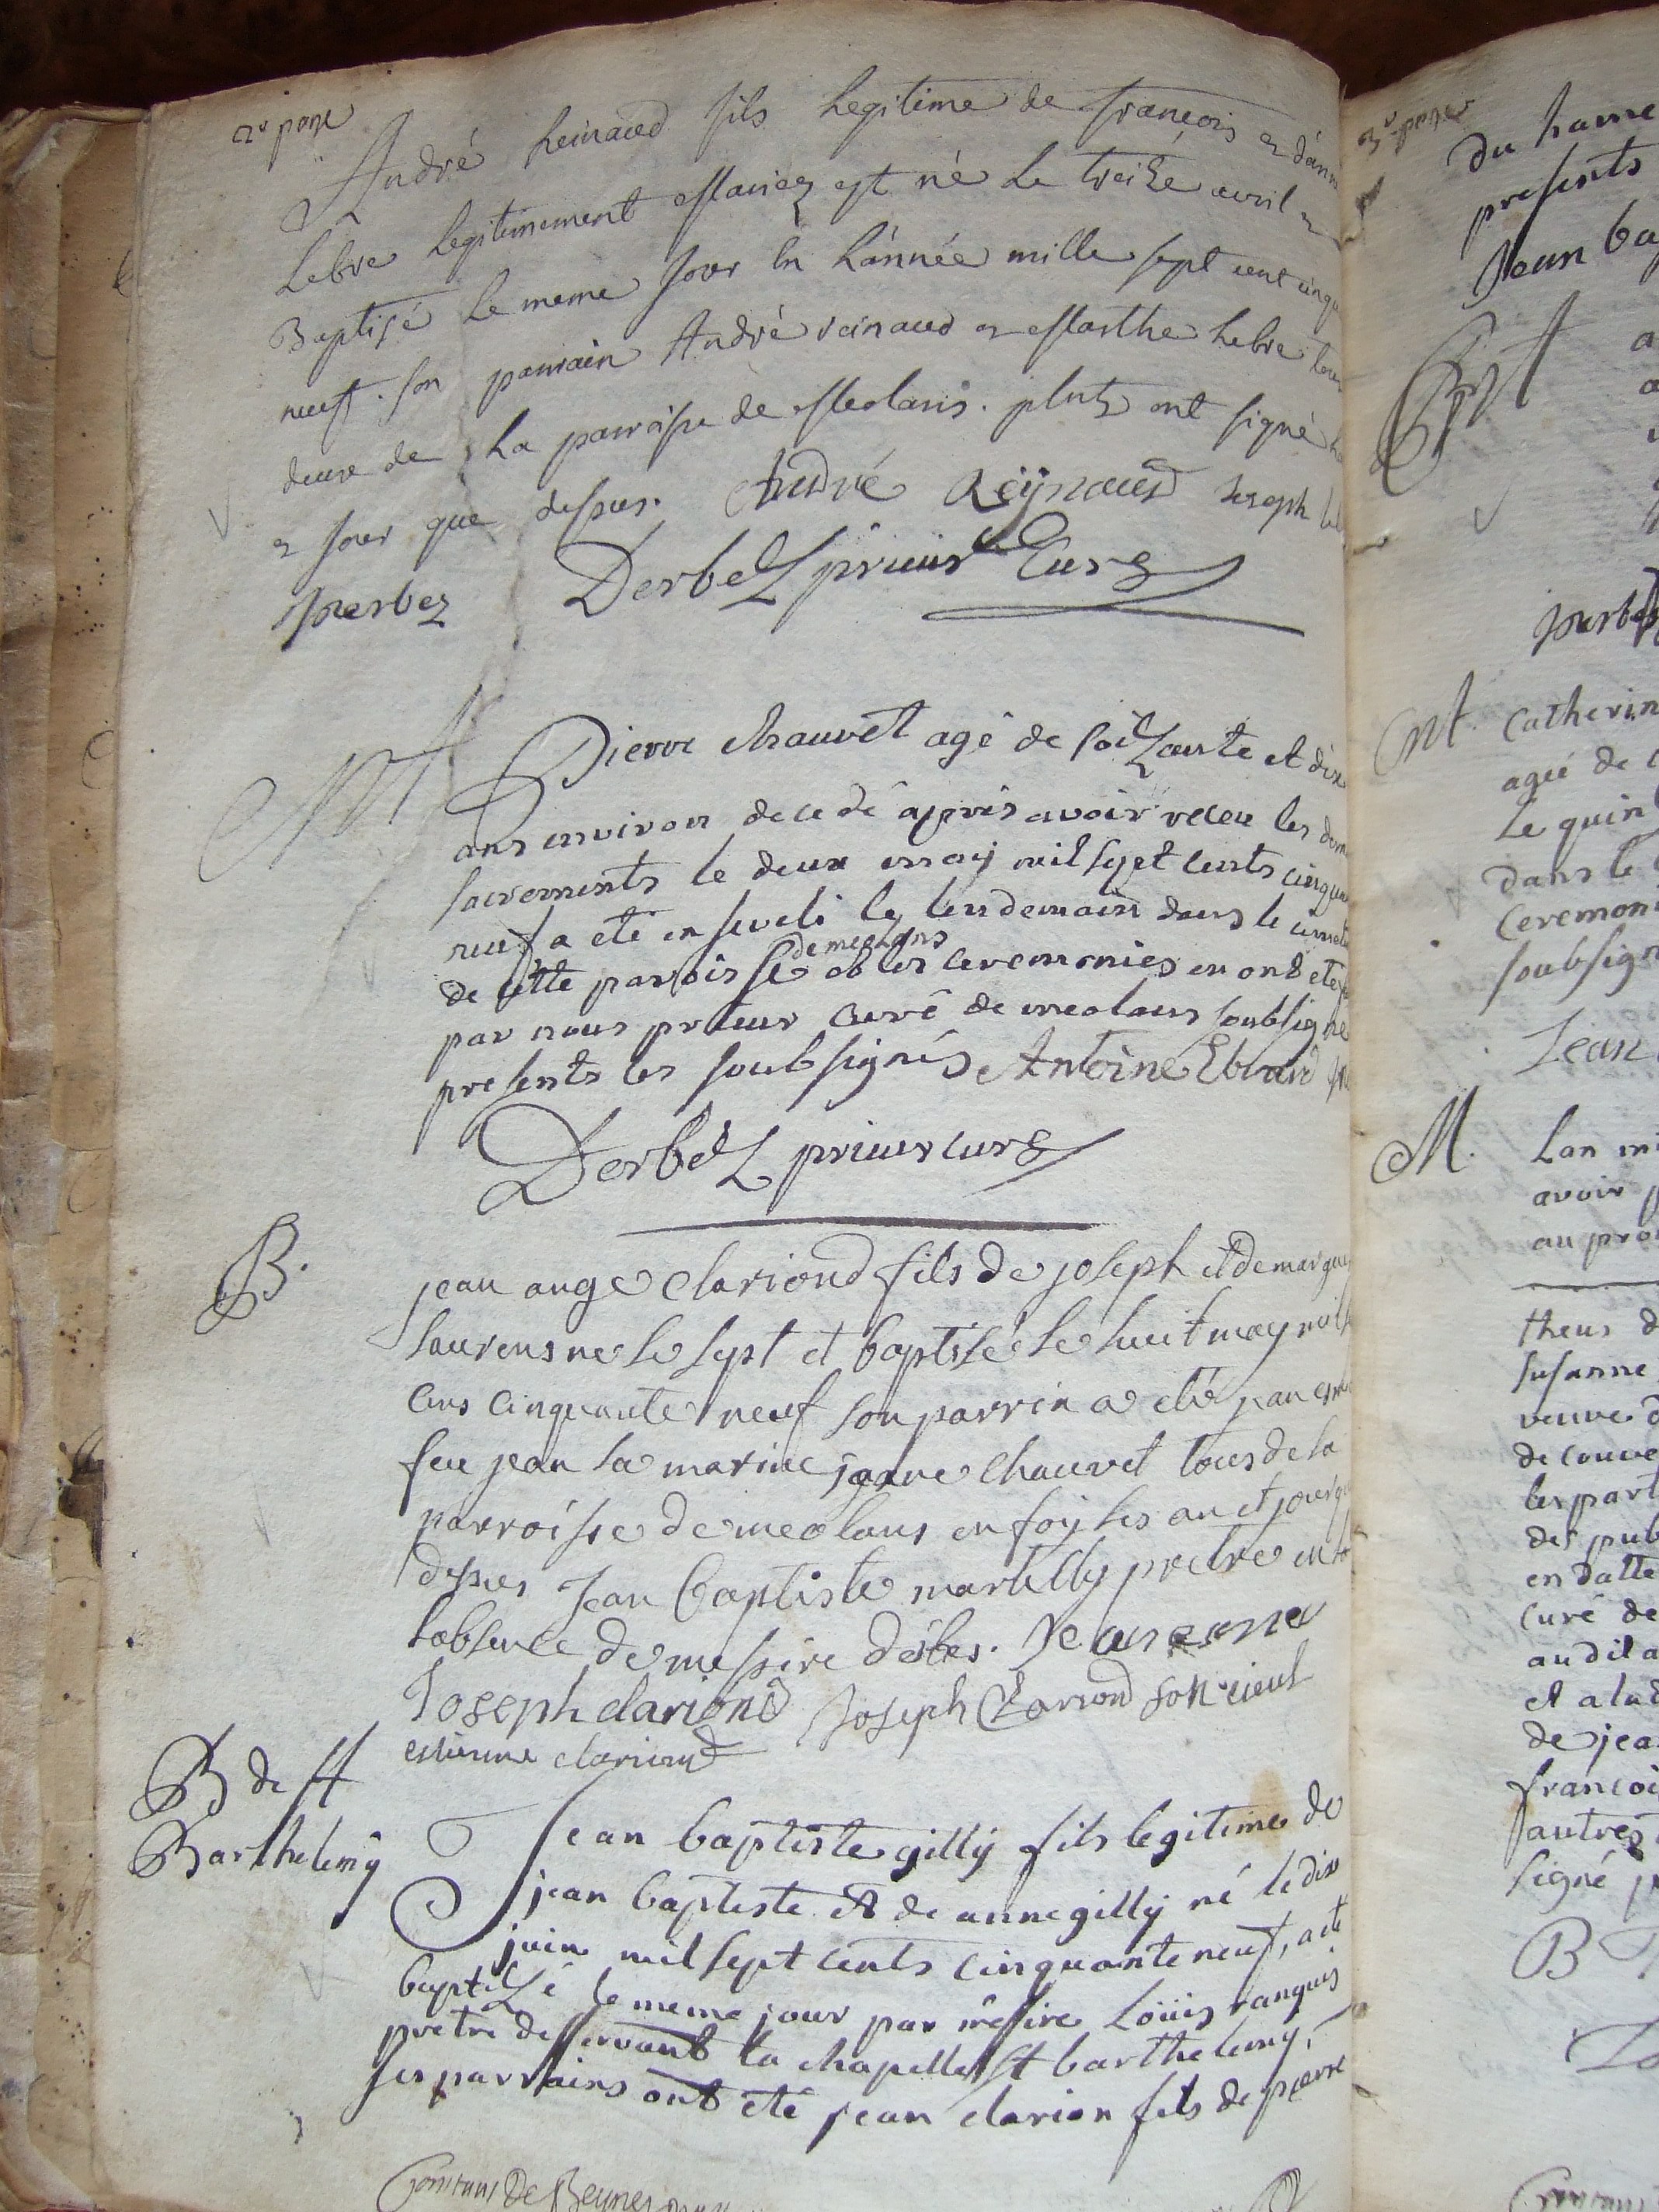 2e page
André heinaud fils Legitime de françois et d'ann
Lebre Legitimement Mariez est né Le treize avril et
Baptisé Le meme Jour En L'année mille sept cent cinqu
neuf. son parrain André reinaud et Marthe Lebre tous
deux de La parroisse de Meolans. plnts ont signé
et Jour que dessus. André Reijnaud Joseph
Juerbez Derbez prieur Curé
Mt
Pierre Chauvet agé de soizante et dix
ans environ decedé apres avoir receu les dern
sacrements le deux may mil sept cents cinquan
neuf a eté enseveli le lendemain dans le cimeti
de cette parroisse de meolans ob les ceremonies en ont eté
par nous prieur curé de meolans soubsigné
presents les soubsignés Antoine Ebrard
Derbez prieur curé
B.
jean ange clariond fils de joseph et de margue
laurens ne le sept et baptisé le huit may mil s
cens cinquante neuf son parrin a eté jean
feu jean la marine jeanne chauvet tous de la
parroisse de meolans en foy les an et jour q
dessus Jean baptiste martelly pretre en
l'absence de messire d'erbes. Jean
Joseph clariond Joseph Clariond son
estienne clariond
B de St
Barthelemy
Jean baptiste gilly fils legitime de
jean baptiste et de anne gilly né le dix
juin mil sept cents cinquante neuf, a eté
baptizé le meme jour par mesire Loüis ranquis
pretre desservant la chapelle St barthelemy,
ses parrains ont eté jean clarion fils de pierre
Constans De Beynes
3e page
du hame
presents
Jean ba
Bpt
Mt. Catherin
ageé de
Le quin
dans le
ceremon
soubsign
Jean
M. Lan mi
avoir p
au pro
theus d
susanne
veuve d
de couve
les part
des pub
en datte
curé de
audit a
et a la d
de jea
françoi
autres
signé
B